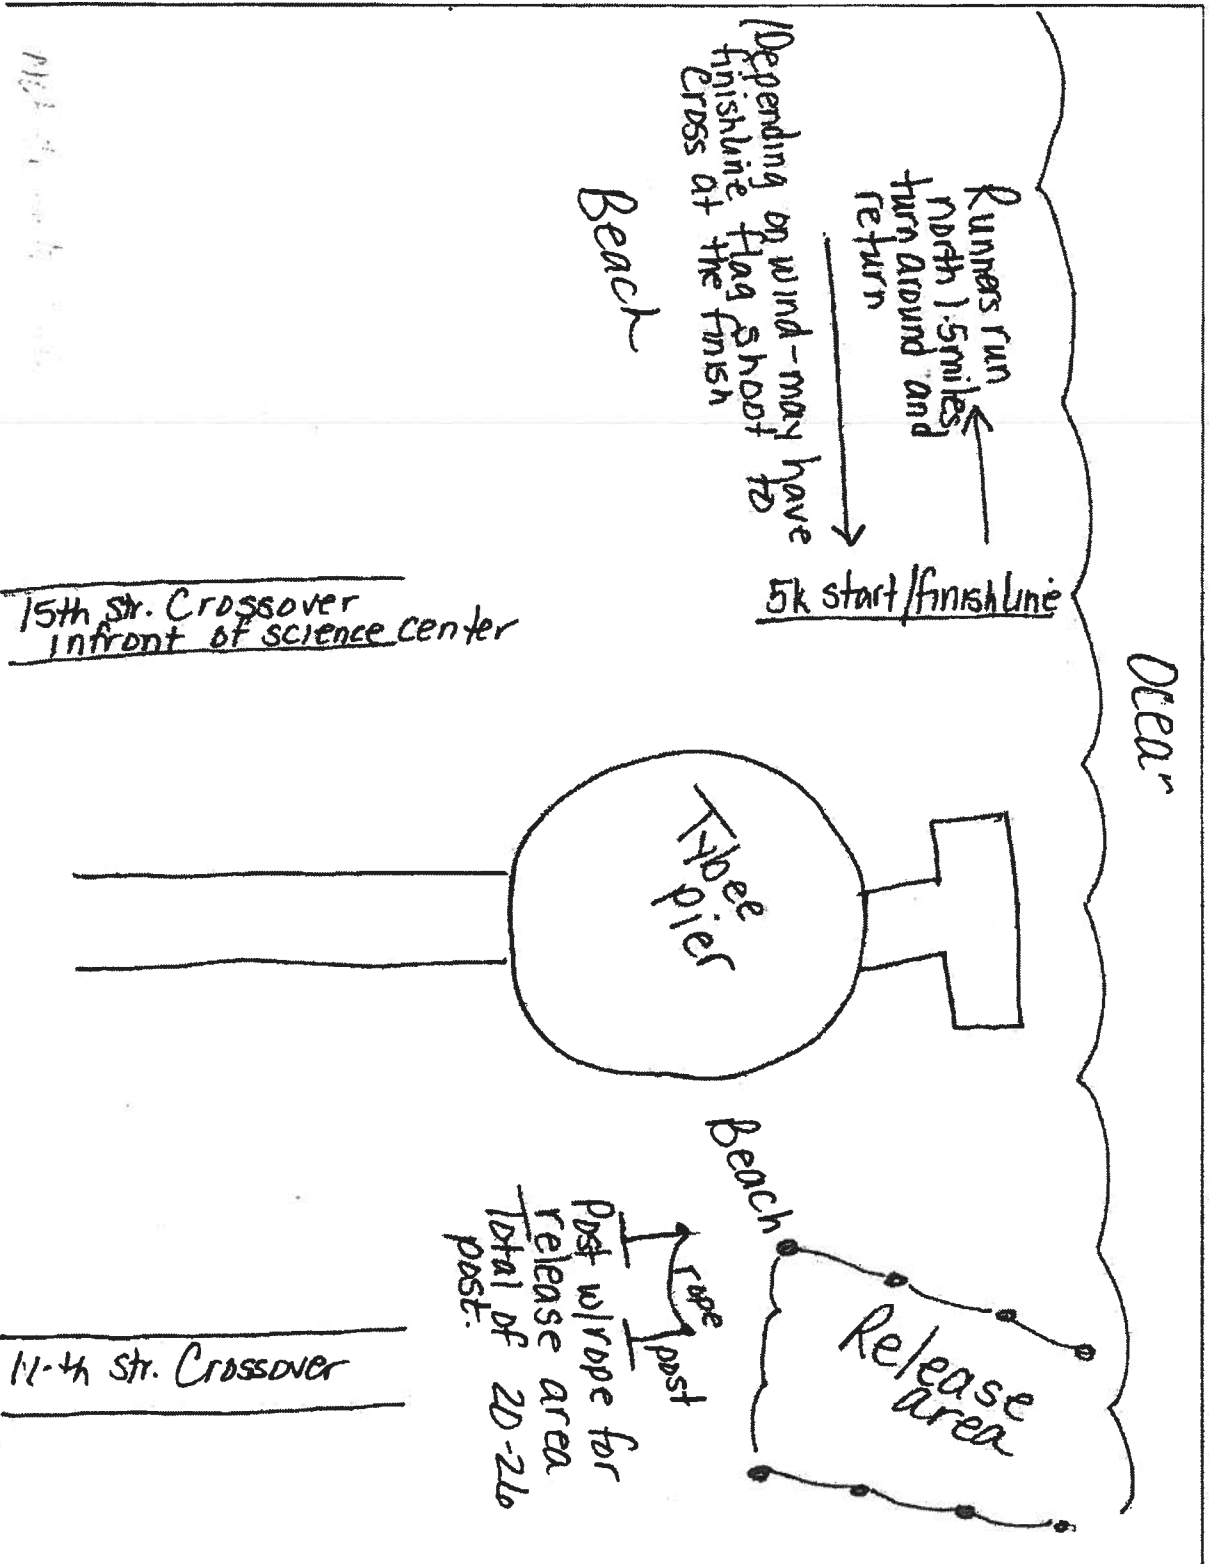 Ocean
Runners run
north 1.5 miles
turn around and
return
(Depending on wind-may have
finishline flag shoot to
cross at the finish
Beach
5k start/finishline
15th str. Crossover
infront of science center
Tybee
pier
Beach
Release
area
rope
post
Post w/rope for
release area
Total of 20-26
post.
str. Crossover